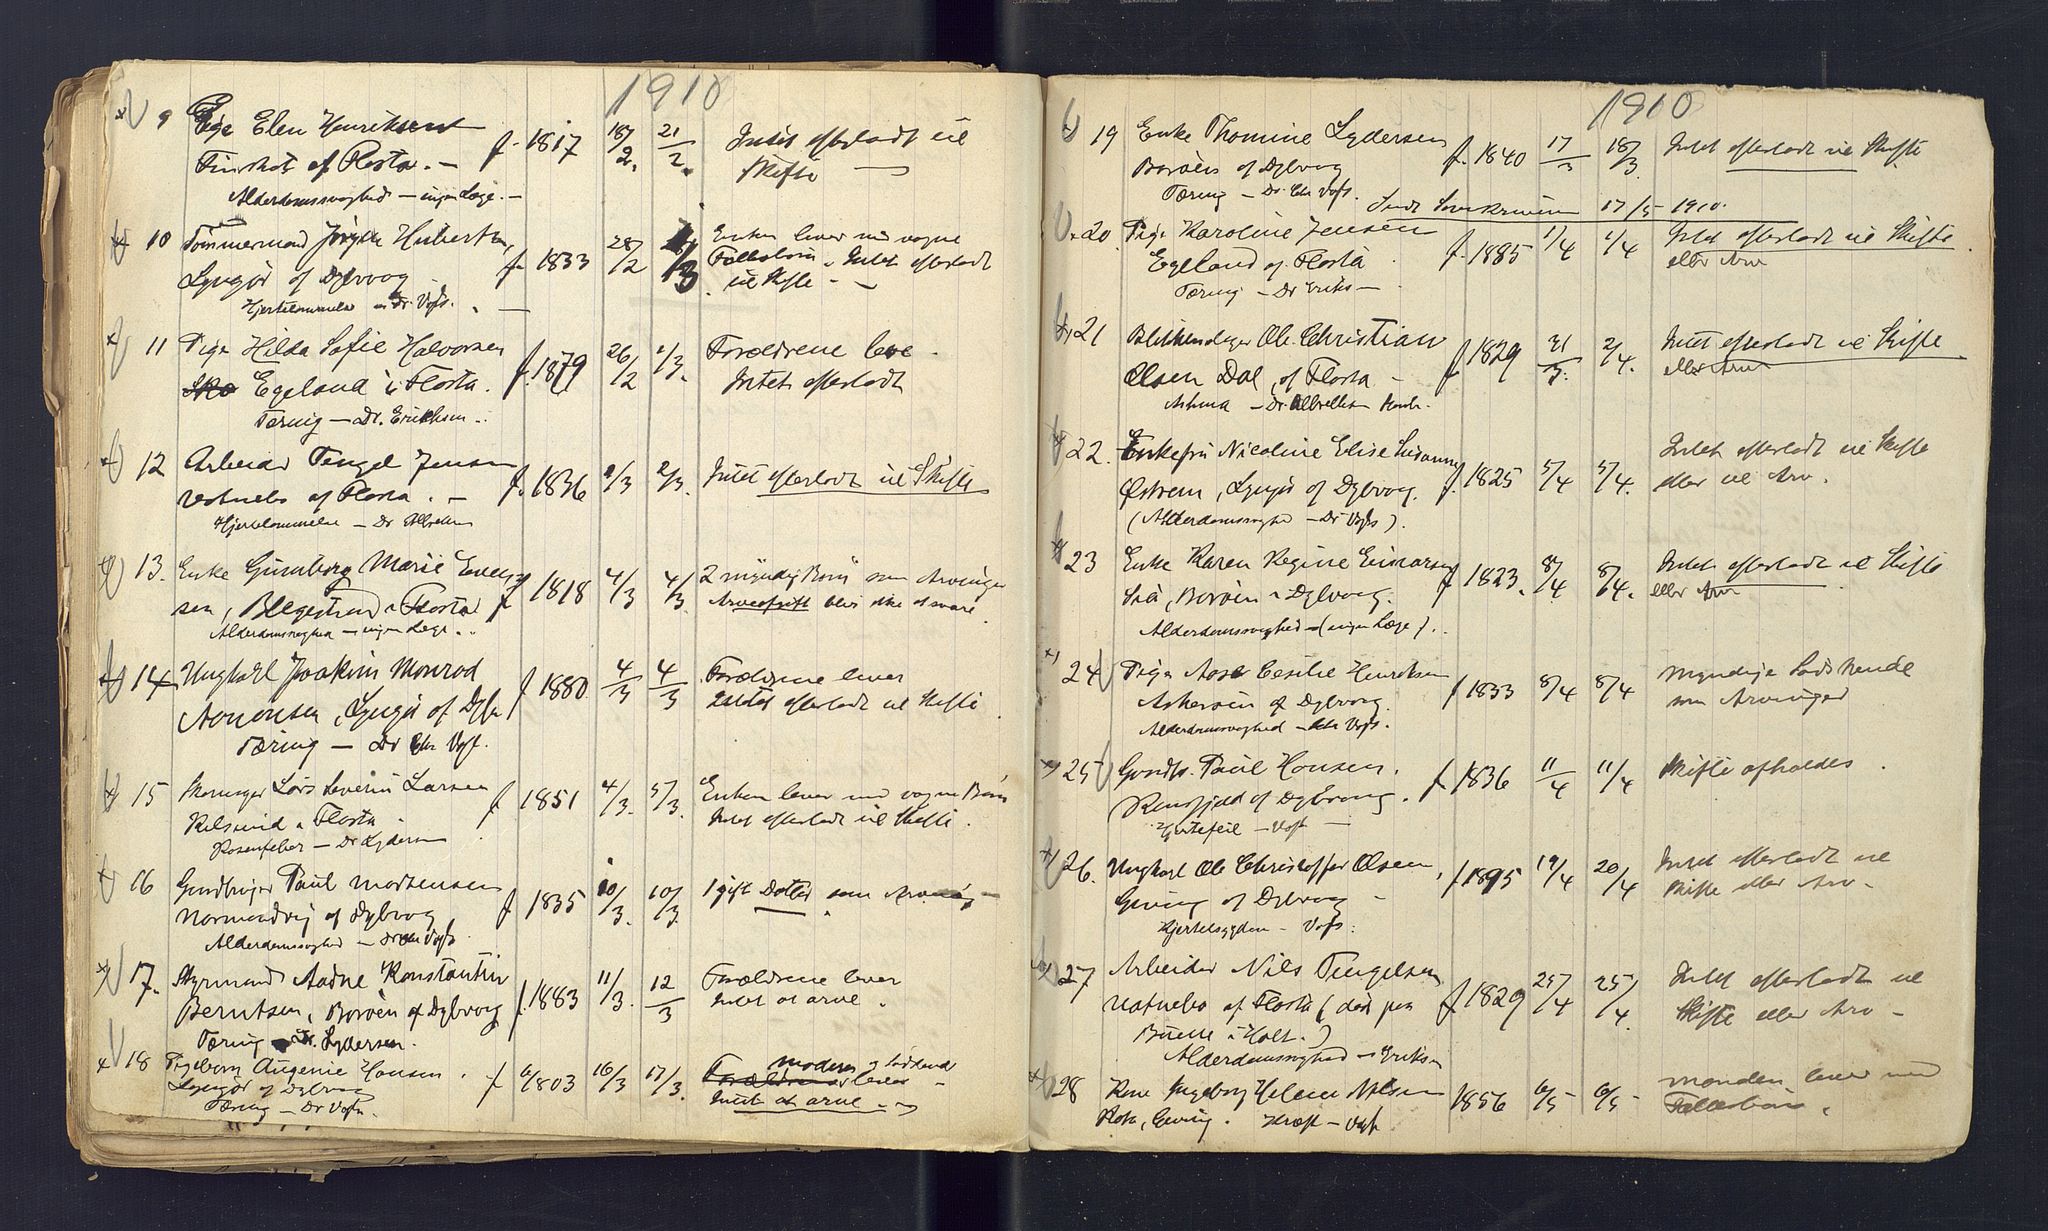 1910
9 Pige Elen Henriksen f. 1817 18/2. 21/2. Intet efterladt til
af Flosta. — Skifte —
Alderdomssvaghed — ingen Læge. —
10 Tømmermand Jørgen f. 1833 28/2 1/3 Enken lever med
Lyngør af Dybvaag Fællesbørn. Intet efterladt
Hjertelammelse — Dr. Vogt. — til Skifte. —
11 Pige Hilda Sofie Halvorsen f. 1879 26/2 1/3. Forældrene leve.
Egeland i Flosta. Intet efterladt
Tæring — Dr. Eriksen.
12 Arbeider Tengel Jensen f. 1836 2/3 Intet efterladt til Skifte
Vatnebo af Flosta. —
Hjertelammelse — Dr
13. Enke Gunborg Marie f 1818 4/3 4/3 2 myndig Børn som Arvinger
sen, Flosta
Alderdomssvaghed — ingen Læge.
14 Ungkarl Joakim Monrad f 1880 4/3 4/3 Forældrene lever
Aronsen, Lyngør af Dyb. Intet efterladt til Skifte.
Tæring — Dr Chr Vogt.
15 Lars Severin Larsen f 1851 4/3. 5/3. Enken lever med Børn
Kilsund Flosta Intet efterladt til Skifte.
Rosenfeber — Dr Lydersen
16 Gaardbruger Paul Mortensen f. 1835 10/3. 10/3. 1 gift Datter som Arving —
Normandvig af Dybvaag
Alderdomssvaghed — Dr Vogt
17. Styrmand Aadne Konstantin f. 1883 11/3. 12/3 Forældrene lever
Berntsen, Borøen af Dybvaag Intet at arve.
Tæring — Dr. Lydersen.
18 Pigebarn Augenie Hansen. f 16/3 17/3. Moderen og
Lyngør af Dybvaag Forældrene lever —
Tæring — Dr Vogt. Intet at arve. —
1910
19 Enke Thomine Lydersen f. 1840 17/3 18/3 Intet efterladt til Skifte
Borøen af Dybvaag
Tæring — Dr. Chr Vogt.
Sendt Sorenskriveren 17/5 1910.
20. Pige Karoline Jensen f. 1895 1/4 1/4 Intet efterladt til Skifte
Egeland af Flosta eller Arv
Tæring — Dr Eriks —
21 Blikkenslager Ole Christian f 1829 31/3. 2/4. Intet efterladt til Skifte
Olsen Dal, af Flosta — eller Arv
Astma — Dr. Albretsen
22. Enkefru Nicoline Elise Susanne f. 1825 5/4 5/4. Intet efterladt til Skifte
Østrem, Lyngør af Dybvaag. eller til Arv.
(Alderdomssvaghed — Dr Vogt).
23 Enke Karen Regine Einarsen f 1823. 8/4 8/4. Intet efterladt til Skifte
Borøen Dybvaag. eller Arv
Alderdomssvaghed — (ingen Læge).
24 Pige Aase Cesilie Henriksen f 1833 8/4 8/4 Myndige Sødskende
Askerøen af Dybvaag. som Arvinger
Alderdomssvaghed — Chr Vogt.
25 Gaardb. Paul Hansen. f 1836 11/4 11/4 Skifte afholdes.
af Dybvaag.
Hjertefeil — Vogt —
26. Ungkarl Ole Christoffer Olsen, f 1895 19/4 20/4 Intet efterladt til
Geving af Dybvaag — Skifte eller Arv —
Hjertesygdom — Vogt.
27 Arbeider Nils Tengelsen f 1829 25/4 25/4. Intet efterladt til
Vatnebo af Flosta (død paa Skifte eller Arv —
i Holt.)
Alderdomssvaghed — Eriksen
28 Kone Ingeborg Helene Nilsen 1856 6/5 6/5 Manden lever med
Geving. Kræft — Vogt Fællesbørn.